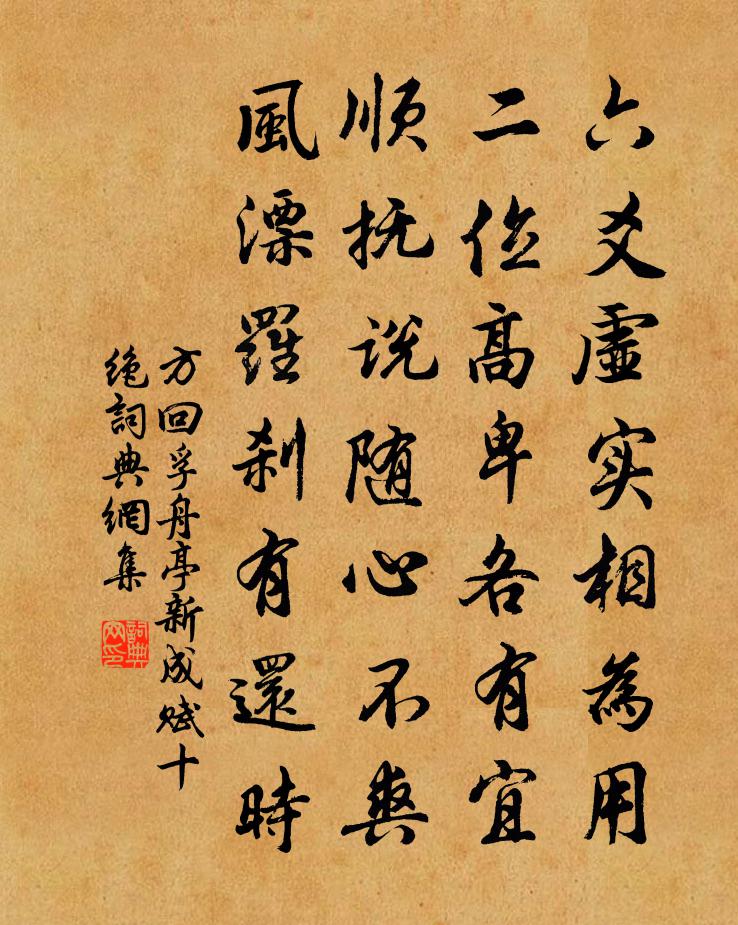 六爻虛实相為用
二位高卑各有宜
順抚说随心不爽
風漂羅刹有還時
方回孚舟亭新成赋十
绝詞典網集
詞典
网印